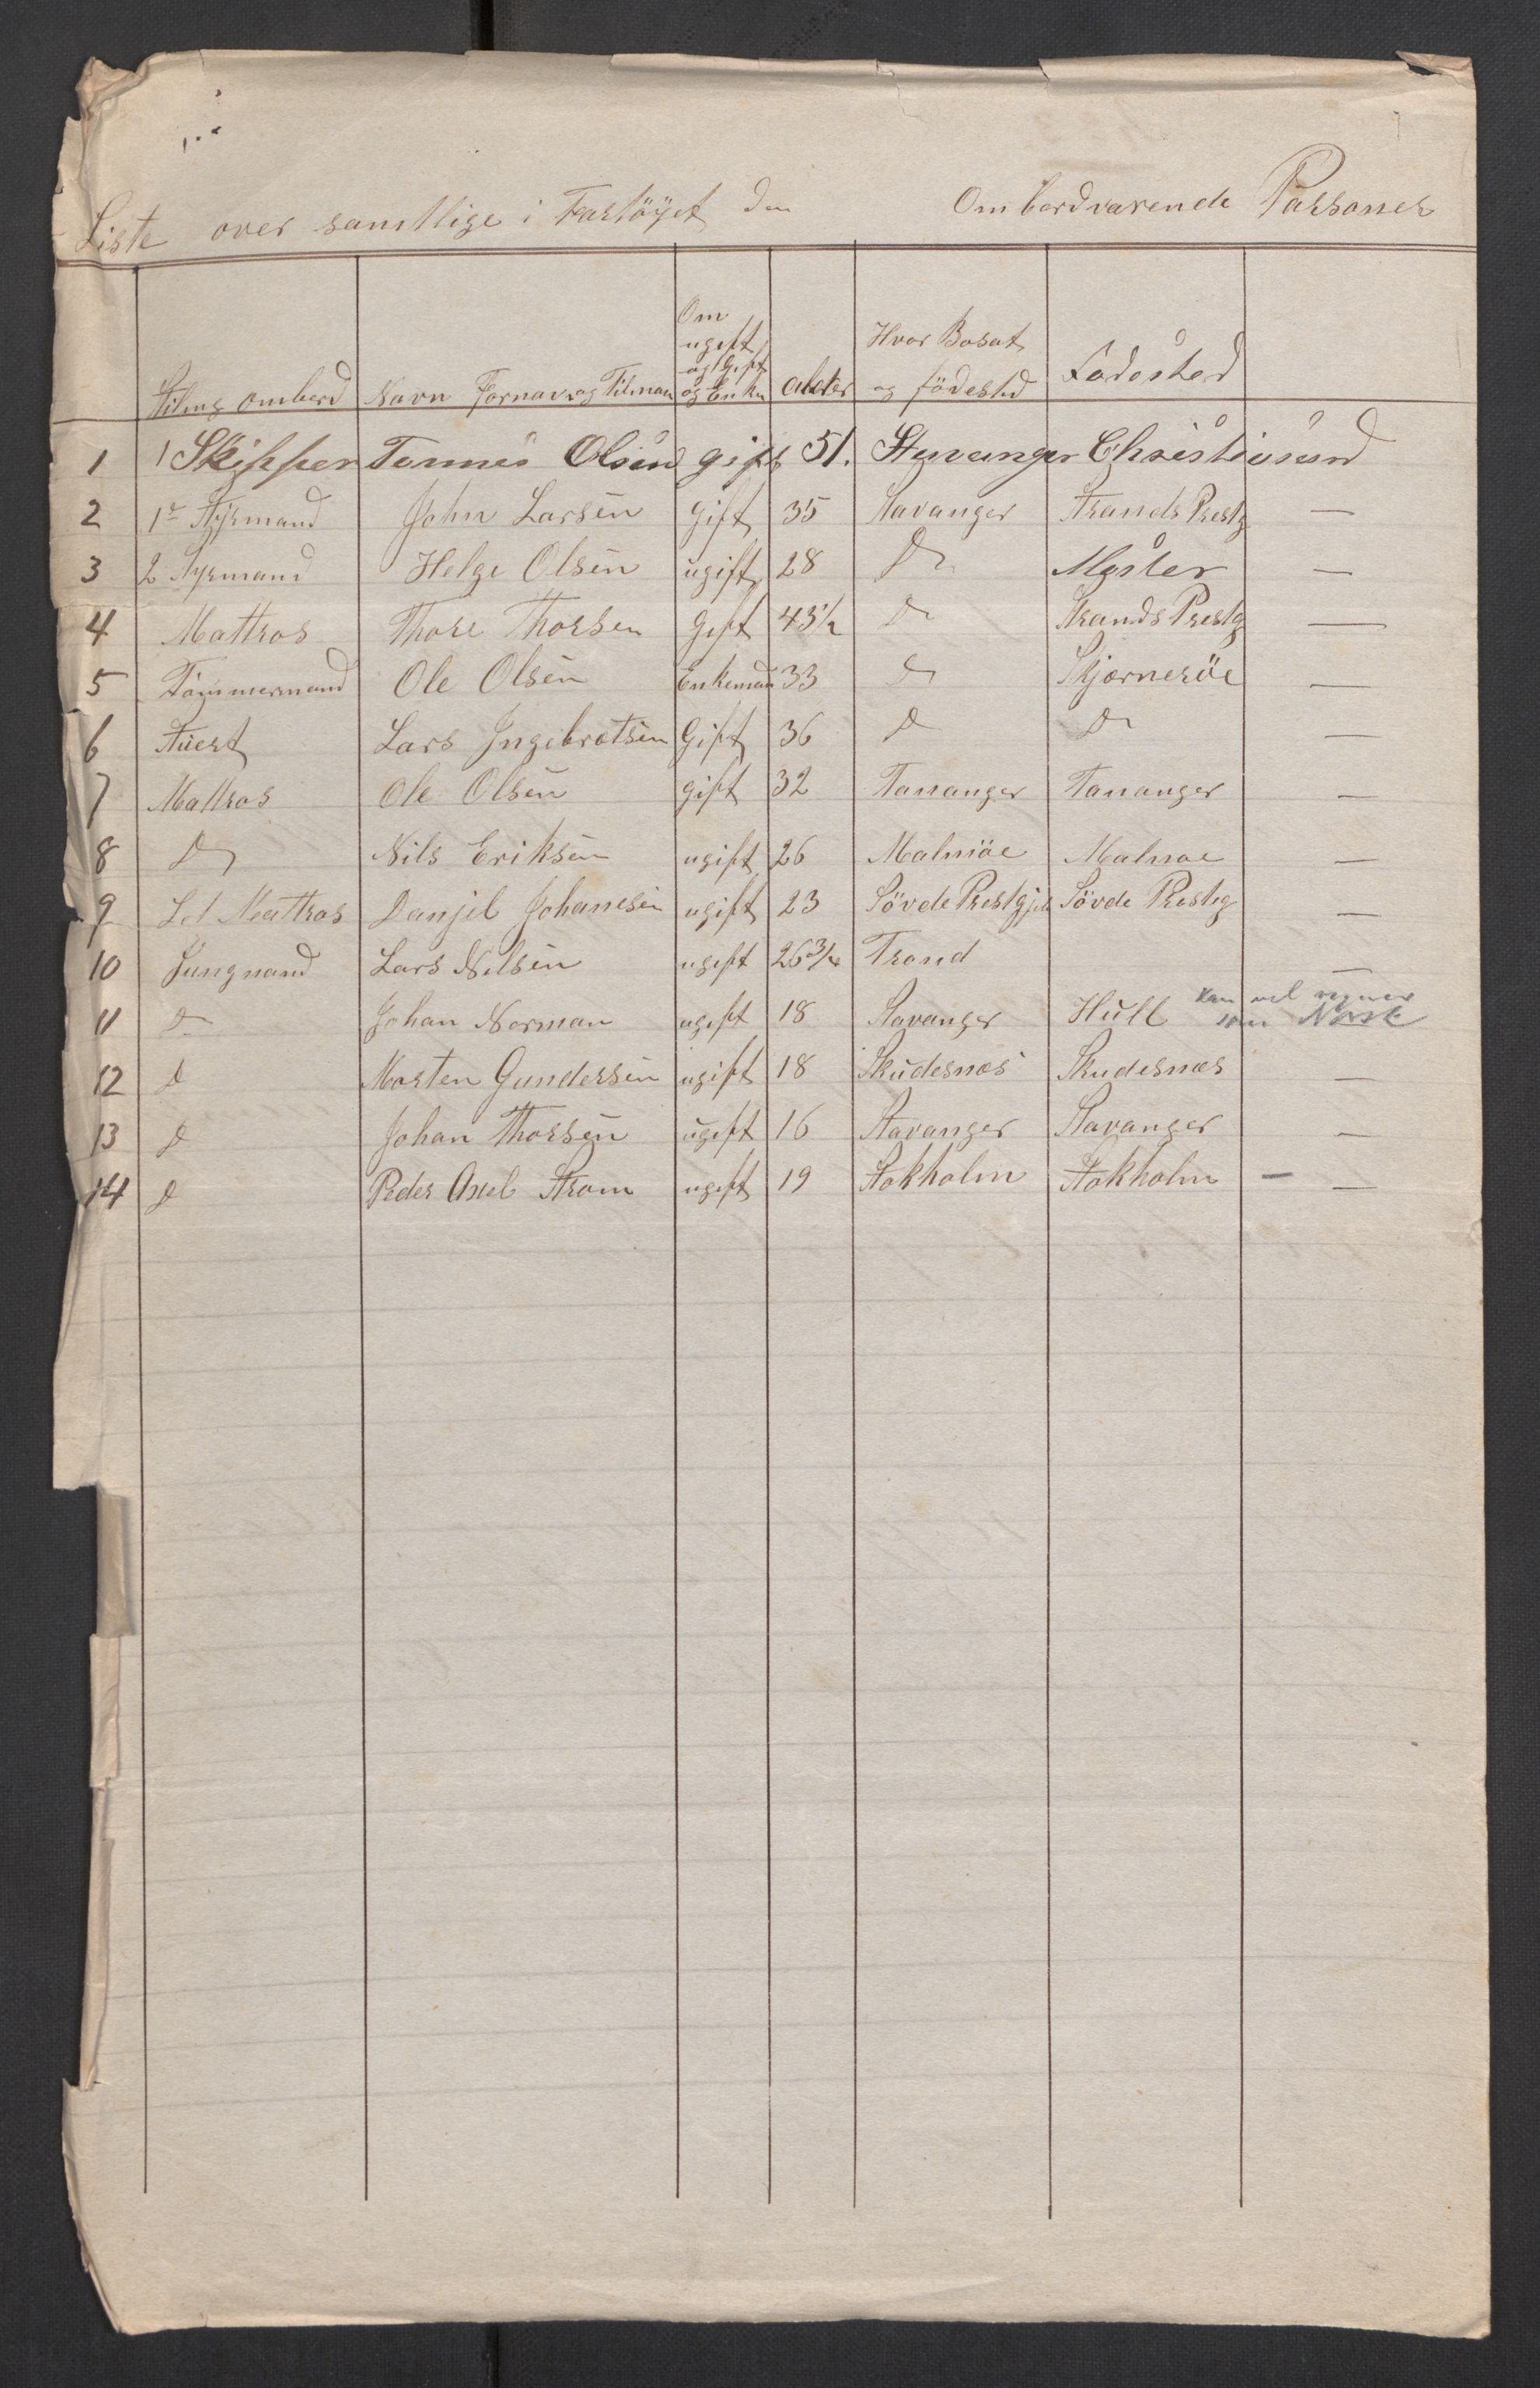 Liste over samtlige i Fartöyet den Ombordvarende Passoner
Stiling ombord Navn Fornavn og Tilnavn Om ugift og Gift og Enke alder Hvor Bosat og födested Födested
1 1 Skipper Tønnes Olsen gift 51. Stavanger Christiasand
2 1r Styrmand John Larsen Gift 35 Stavanger Strands Prestg —
3 2 Styrmand Helge Olsen ugift 28 D Moster —
4 Mattros Thore Thorsen Gift 43 1/2 D Strands Prestg —
5 Tömmermand Ole Olsen Enkemand 33 D Skjærneröe —
6 Stuert Lars Ingebretsen Gift 36 D D —
7 Mattros Ole Olsen gift 32 Tananger Tananger —
8 D Nils Eriksen ugift 26 Malmöe Malmøe —
9 Let Mattros Danjel Johanesen ugift 23 Sövde Prestgjeld Sövde Prestg —
10 Jungmand Lars Nilsen ugift 26 3/4 Trond —
11 D Johan Norman ugift 18 Stavanger Hull Kan vel regnes som Norsk
12 D Morten Gundersen ugift 18 Skudesnæs Skudesnæs —
13 D Johan Thorsen ugift 16 Stavanger Stavanger —
14 D Peder Axel Strøm ugift 19 Stokholm Stokholm — —